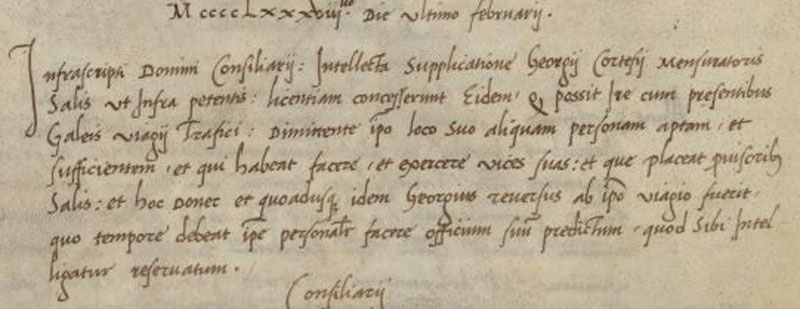 M ccccLxxxviijᵘᵒ. Die ultimo februarij.
Infrascripti Domini Consiliarij: Intellecta Supplicatione Georgij Cortesij Mensuratoris
Salis ut Infra petentis: licentiam concesserunt Eidem, ꝙ possit Ire cum presentibus
Galeis viagij Trafici: Dimittente ip̄o loco Suo aliquam personam aptam, et
sufficientem, et qui habeat facere, et exercere vices suas: et que placeat ꝓuisoribꝫ
Salis: et hoc Donec et quoadusqꝫ idem Georgius reuersus ab ip̄o viagio fuerit.
quo tempore debeat ip̄e personalr̄ facere officium suū predictum, quod Sibi Intel
ligatur reseruatum.
Consiliarij